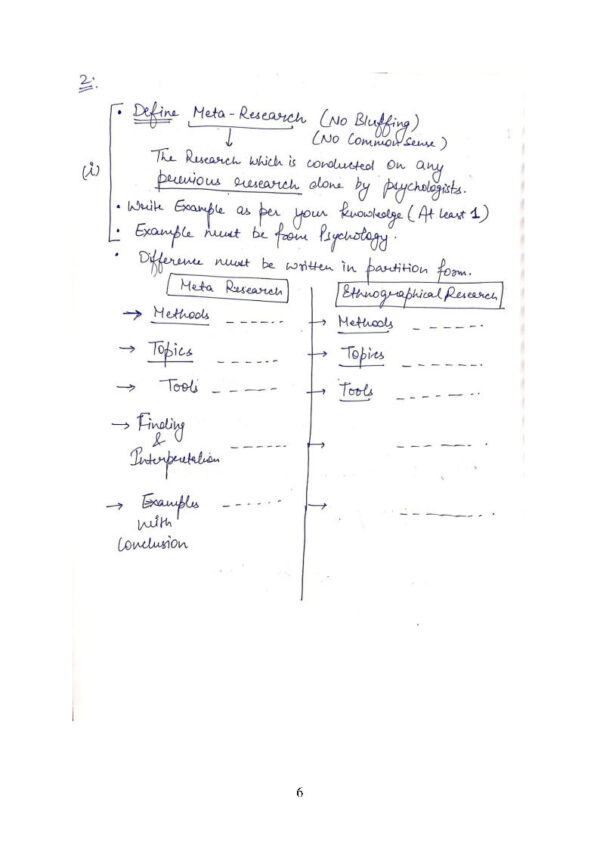 2.
• Define Meta-Research (No Bluffing)
(No Common sense)
(i)
The Research which is conducted on any
previous research done by psychologists.
• Write Example as per your knowledge (At least 1)
• Example must be from Psychology.
• Difference must be written in partition form.
Meta Research
Ethnographical Research
→ Methods ------
→ Methods ------
→ Topics ------
→ Topics ------
→ Tools ------
→ Tools ------
→ Finding
&
Interpretation ------
→ ------
→ Examples ------
with
Conclusion
→ ------
6